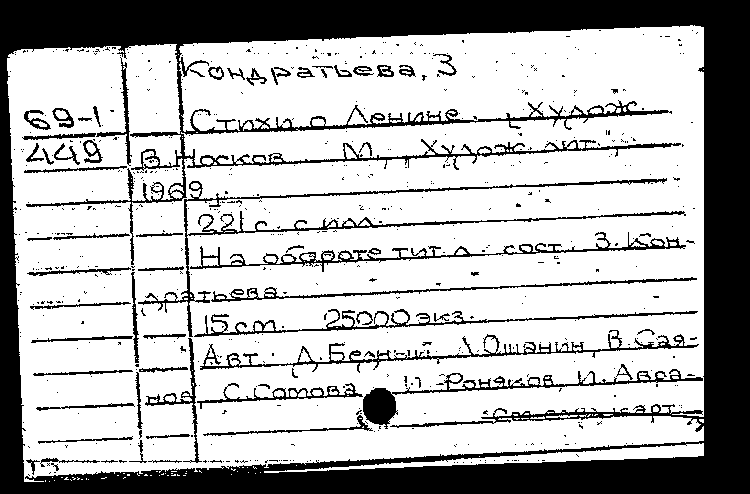 Кондратьева, З
69-1
Стихи о Ленине. [Худож.
449
В. Носков М., "Худож. лит.",
1969].
221 с. с илл.
На обороте тит. л. сост. З. Кон-
дратьева.
15 см. 25000 экз.
Авт.: Д. Бедный, Л. Ошанин, В. Сая-
нов, С. Сомова, Роняков, И. Авра-
См. след. карт.